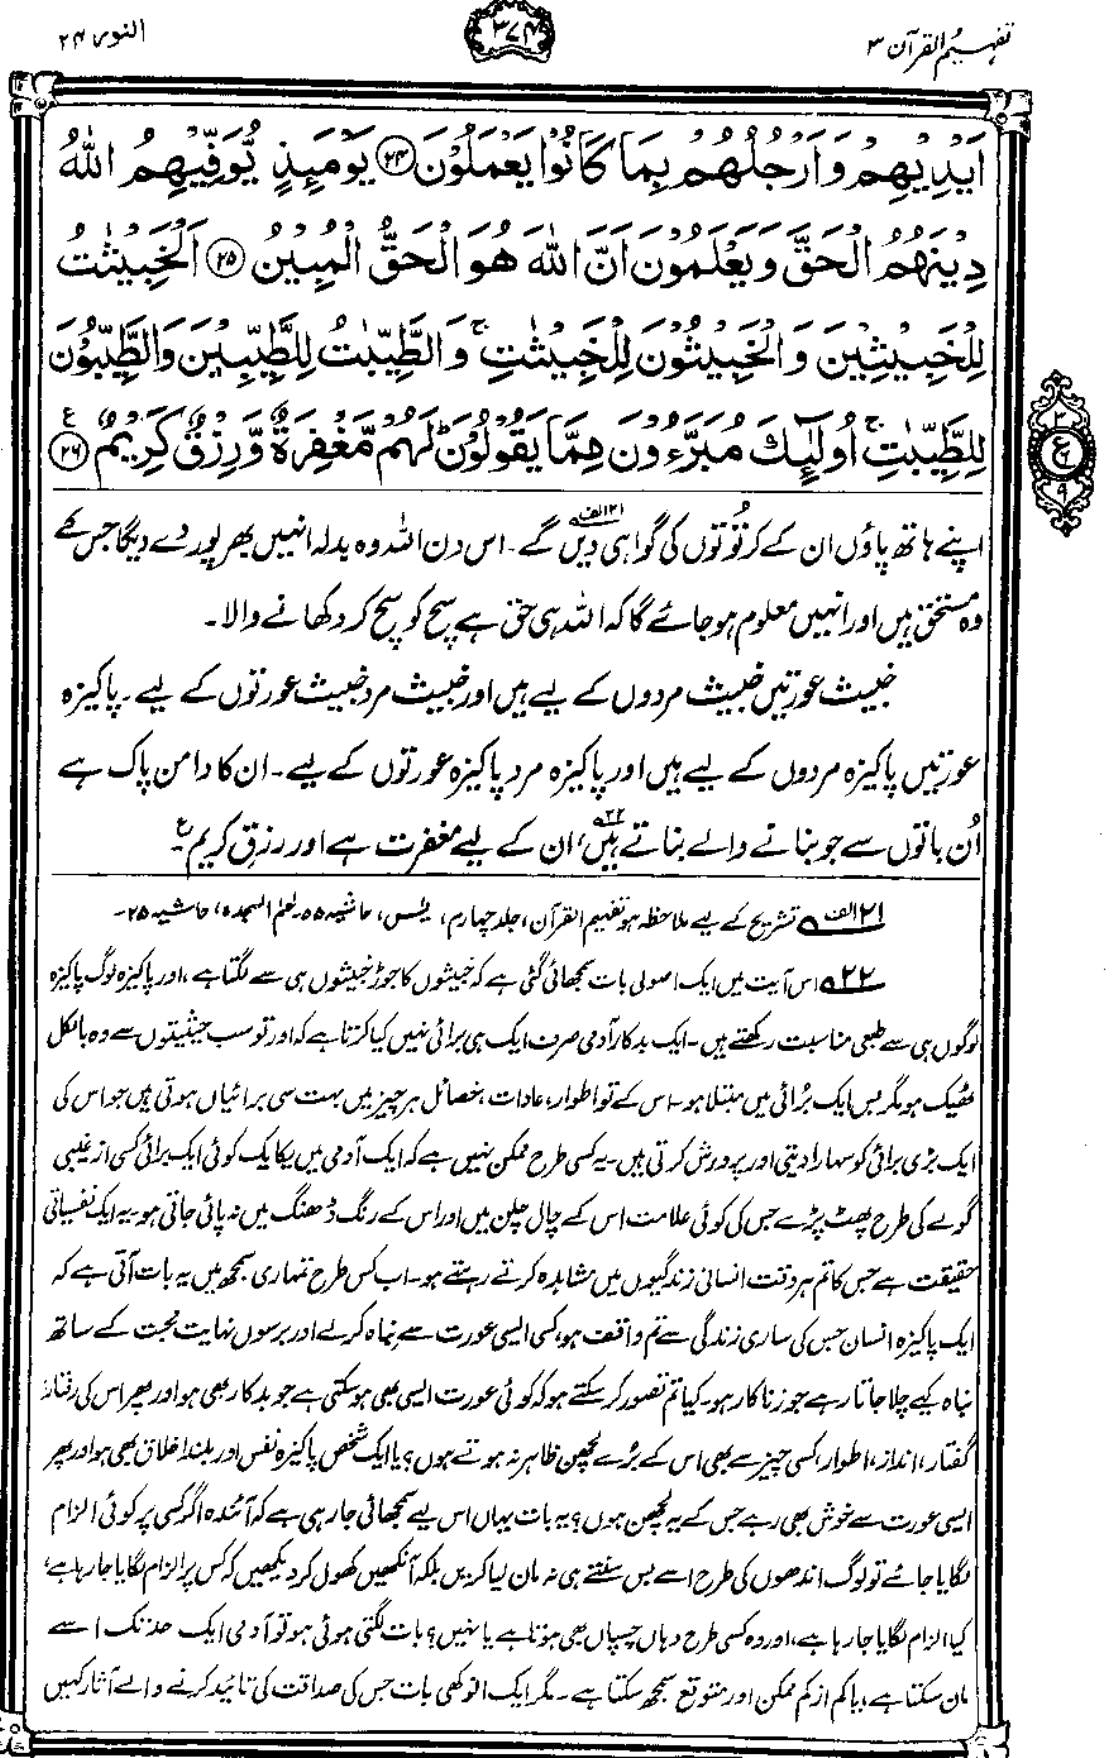 تفہیم القرآن ۳
۳۷۴
النور ۲۴
اَيْدِيْهِمْ وَاَرْجُلُهُمْ بِمَا كَانُوْا يَعْمَلُوْنَ ۲۴ يَوْمَىِٕذٍ يُّوَفِّيْهِمُ اللّٰهُ
دِيْنَهُمُ الْحَقَّ وَيَعْلَمُوْنَ اَنَّ اللّٰهَ هُوَ الْحَقُّ الْمُبِيْنُ ۲۵ اَلْخَبِيْثٰتُ
لِلْخَبِيْثِيْنَ وَالْخَبِيْثُوْنَ لِلْخَبِيْثٰتِ ۚ وَالطَّيِّبٰتُ لِلطَّيِّبِيْنَ وَالطَّيِّبُوْنَ
لِلطَّيِّبٰتِ ۚ اُولٰٓىِٕكَ مُبَرَّءُوْنَ مِمَّا يَقُوْلُوْنَ ؕ لَهُمْ مَّغْفِرَةٌ وَّرِزْقٌ كَرِيْمٌ ۲۶ ع
۳
ع
۶
۹
اپنے ہاتھ پاؤں ان کے کرتُوتوں کی گواہی دیں گے۲۱الف۔ اس دن اللہ وہ بدلہ انہیں بھر پور دے دیگا جس کے
وہ مستحق ہیں اور انہیں معلوم ہو جائے گا کہ اللہ ہی حق ہے سچ کو سچ کر دکھانے والا۔
خبیث عورتیں خبیث مردوں کے لیے ہیں اور خبیث مرد خبیث عورتوں کے لیے۔ پاکیزہ
عورتیں پاکیزہ مردوں کے لیے ہیں اور پاکیزہ مرد پاکیزہ عورتوں کے لیے۔ ان کا دامن پاک ہے
اُن باتوں سے جو بنانے والے بناتے ہیں۲۲، ان کے لیے مغفرت ہے اور رزق کریم ع
۲۱الف تشریح کے لیے ملاحظہ ہو تفہیم القرآن، جلد چہارم، یٰس، حاشیہ ۵۵۔ حٰم السجدہ، حاشیہ ۲۵۔
۲۲ اس آیت میں ایک اصولی بات سمجھائی گئی ہے کہ خبیثوں کا جوڑ خبیثوں ہی سے لگتا ہے، اور پاکیزہ لوگ پاکیزہ
لوگوں ہی سے طبعی مناسبت رکھتے ہیں۔ ایک بدکار آدمی صرف ایک ہی برائی نہیں کیا کرتا ہے کہ اور تو سب حیثیتوں سے وہ بالکل
ٹھیک ہو مگر بس ایک بُرائی میں مبتلا ہو۔ اس کے تو اطوار، عادات، خصائل ہر چیز میں بہت سی برائیاں ہوتی ہیں جو اس کی
ایک بڑی برائی کو سہارا دیتی اور پرورش کرتی ہیں۔ یہ کسی طرح ممکن نہیں ہے کہ ایک آدمی میں یکایک کوئی ایک برائی کسی از غیبی
گولے کی طرح پھٹ پڑے جس کی کوئی علامت اس کے چال چلن میں اور اس کے رنگ ڈھنگ میں نہ پائی جاتی ہو۔ یہ ایک نفسیاتی
حقیقت ہے جس کا تم ہر وقت انسانی زندگیوں میں مشاہدہ کرتے رہتے ہو۔ اب کس طرح تمہاری سمجھ میں یہ بات آتی ہے کہ
ایک پاکیزہ انسان جس کی ساری زندگی سے تم واقف ہو، کسی ایسی عورت سے نباہ کرلے اور برسوں نہایت محبت کے ساتھ
نباہ کیے چلا جاتا رہے جو زناکار ہو۔ کیا تم تصور کرسکتے ہو کہ کوئی عورت ایسی بھی ہوسکتی ہے جو بدکار بھی ہو اور پھر اس کی رفتار،
گفتار، انداز، اطوار، کسی چیز سے بھی اس کے بُرے لچھن ظاہر نہ ہوتے ہوں؟ یا ایک شخص پاکیزہ نفس اور بلند اخلاق بھی ہو اور پھر
ایسی عورت سے خوش بھی رہے جس کے یہ لچھن ہوں؟ یہ بات یہاں اس لیے سمجھائی جا رہی ہے کہ آئندہ اگر کسی پر کوئی الزام
لگایا جائے تو لوگ اندھوں کی طرح اسے بس سنتے ہی نہ مان لیا کریں بلکہ آنکھیں کھول کر دیکھیں کہ کس پر الزام لگایا جا رہا ہے،
کیا الزام لگایا جا رہا ہے، اور وہ کسی طرح وہاں چسپاں بھی ہوتا ہے یا نہیں؟ بات لگتی ہوئی ہو تو آدمی ایک حد تک اسے
مان سکتا ہے، یا کم از کم ممکن اور متوقع سمجھ سکتا ہے۔ مگر ایک انوکھی بات جس کی صداقت کی تائید کرنے والے آثار کہیں